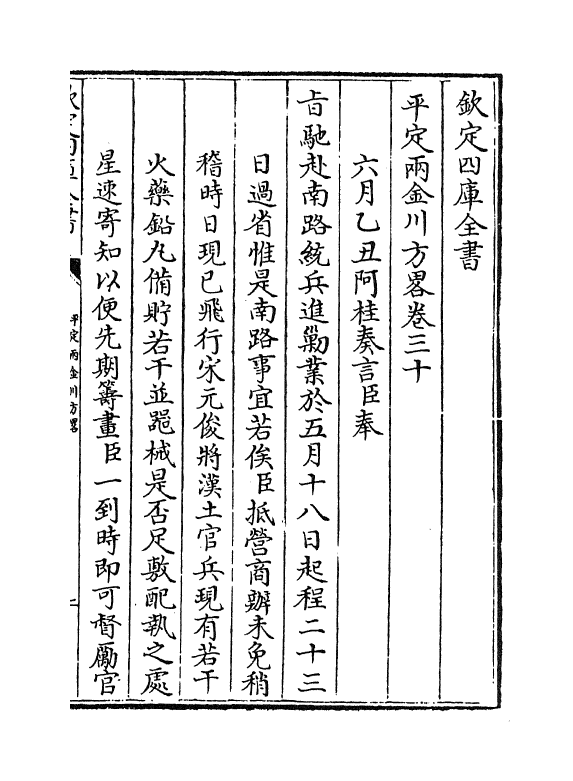 欽定四庫全書
平定兩金川方畧卷三十
六月乙丑阿桂奏言臣奉
旨馳赴南路統兵進勦業於五月十八日起程二十三
日過省惟是南路事宜若俟臣抵營商辦未免稍
稽時日現已飛行宋元俊將漢土官兵現有若干
火藥鉛丸備貯若干並器械是否足敷配執之處
星速寄知以便先期籌畫臣一到時即可督勵官
欽定四庫全書
平定兩金川方畧